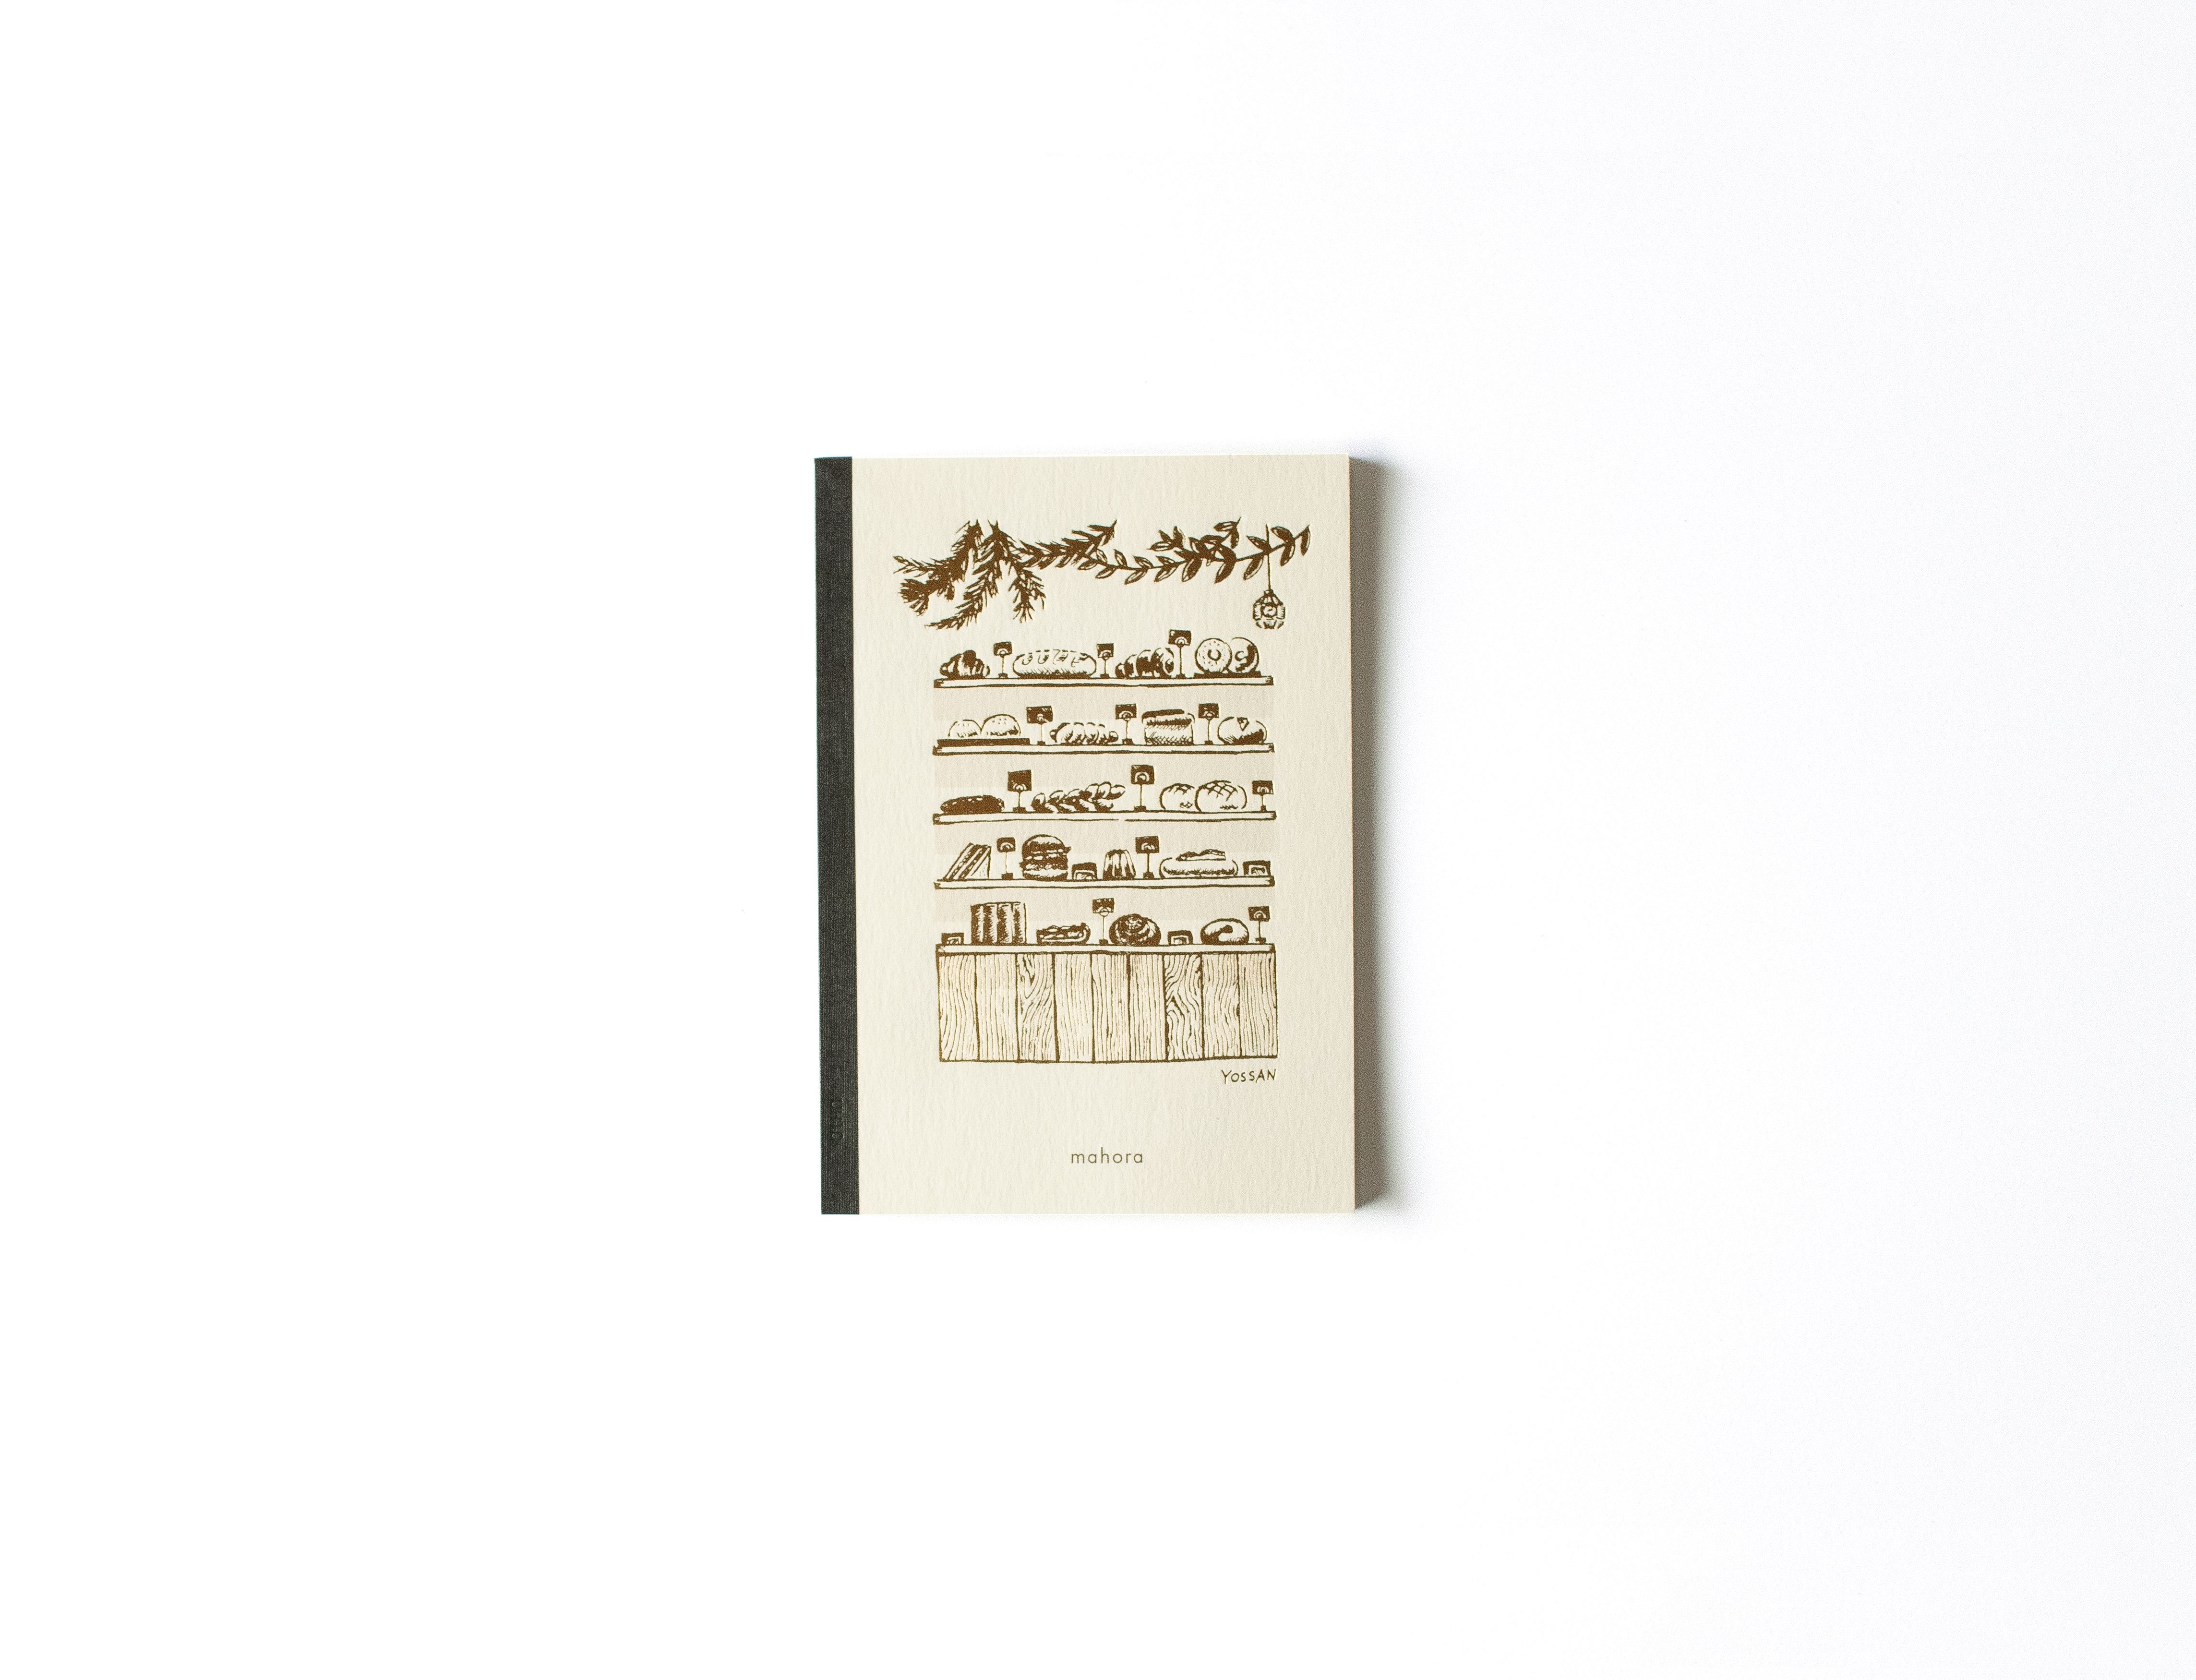 YOSSAN
mahora